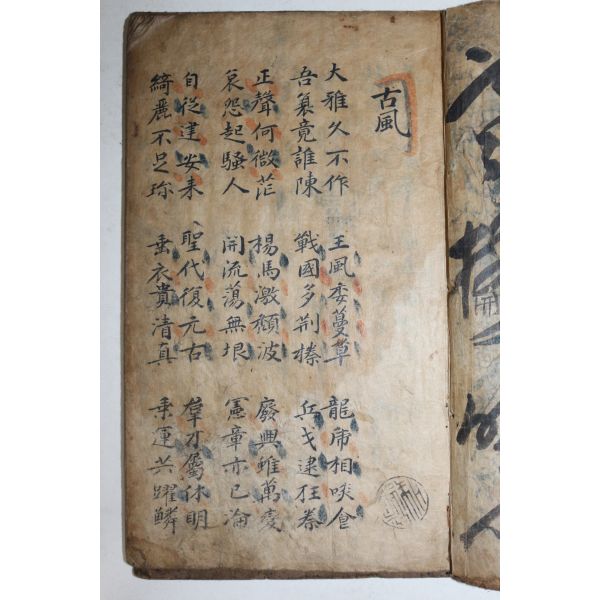 古風
大雅久不作 王風委蔓草 龍虎相啖食
吾衰竟誰陳 戰國多荆榛 兵戈逮狂秦
正聲何微茫 楊馬激頹波 廢興雖萬變
哀怨起騷人 開流蕩無垠 憲章亦已淪
自從建安來 聖代復元古 羣才屬休明
綺麗不足珎 垂衣貴清真 乘運共躍鱗